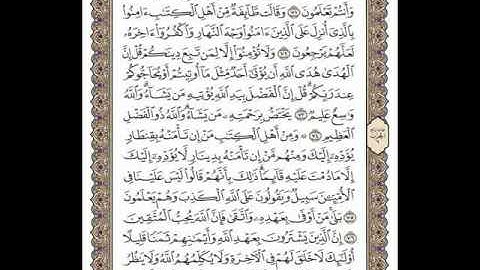 وَأَنتُمْ تَعْلَمُونَ ٧١ وَقَالَت طَّآئِفَةٌ مِّنْ أَهْلِ ٱلْكِتَٰبِ ءَامِنُوا۟
بِٱلَّذِىٓ أُنزِلَ عَلَى ٱلَّذِينَ ءَامَنُوا۟ وَجْهَ ٱلنَّهَارِ وَٱكْفُرُوٓا۟ ءَاخِرَهُۥ
لَعَلَّهُمْ يَرْجِعُونَ ٧٢ وَلَا تُؤْمِنُوٓا۟ إِلَّا لِمَن تَبِعَ دِينَكُمْ قُلْ إِنَّ
ٱلْهُدَىٰ هُدَى ٱللَّهِ أَن يُؤْتَىٰٓ أَحَدٌ مِّثْلَ مَآ أُوتِيتُمْ أَوْ يُحَآجُّوكُمْ
عِندَ رَبِّكُمْ قُلْ إِنَّ ٱلْفَضْلَ بِيَدِ ٱللَّهِ يُؤْتِيهِ مَن يَشَآءُ وَٱللَّهُ
وَٰسِعٌ عَلِيمٌ ٧٣ يَخْتَصُّ بِرَحْمَتِهِۦ مَن يَشَآءُ وَٱللَّهُ ذُو ٱلْفَضْلِ
ٱلْعَظِيمِ ٧٤ وَمِنْ أَهْلِ ٱلْكِتَٰبِ مَنْ إِن تَأْمَنْهُ بِقِنطَارٍ
يُؤَدِّهِۦٓ إِلَيْكَ وَمِنْهُم مَّنْ إِن تَأْمَنْهُ بِدِينَارٍ لَّا يُؤَدِّهِۦٓ إِلَيْكَ
إِلَّا مَا دُمْتَ عَلَيْهِ قَآئِمًا ذَٰلِكَ بِأَنَّهُمْ قَالُوا۟ لَيْسَ عَلَيْنَا فِى
ٱلْأُمِّيِّـۧنَ سَبِيلٌ وَيَقُولُونَ عَلَى ٱللَّهِ ٱلْكَذِبَ وَهُمْ يَعْلَمُونَ
٧٥ بَلَىٰ مَنْ أَوْفَىٰ بِعَهْدِهِۦ وَٱتَّقَىٰ فَإِنَّ ٱللَّهَ يُحِبُّ ٱلْمُتَّقِينَ
٧٦ إِنَّ ٱلَّذِينَ يَشْتَرُونَ بِعَهْدِ ٱللَّهِ وَأَيْمَٰنِهِمْ ثَمَنًا قَلِيلًا
أُو۟لَٰٓئِكَ لَا خَلَٰقَ لَهُمْ فِى ٱلْءَاخِرَةِ وَلَا يُكَلِّمُهُمُ ٱللَّهُ وَلَا يَنظُرُ